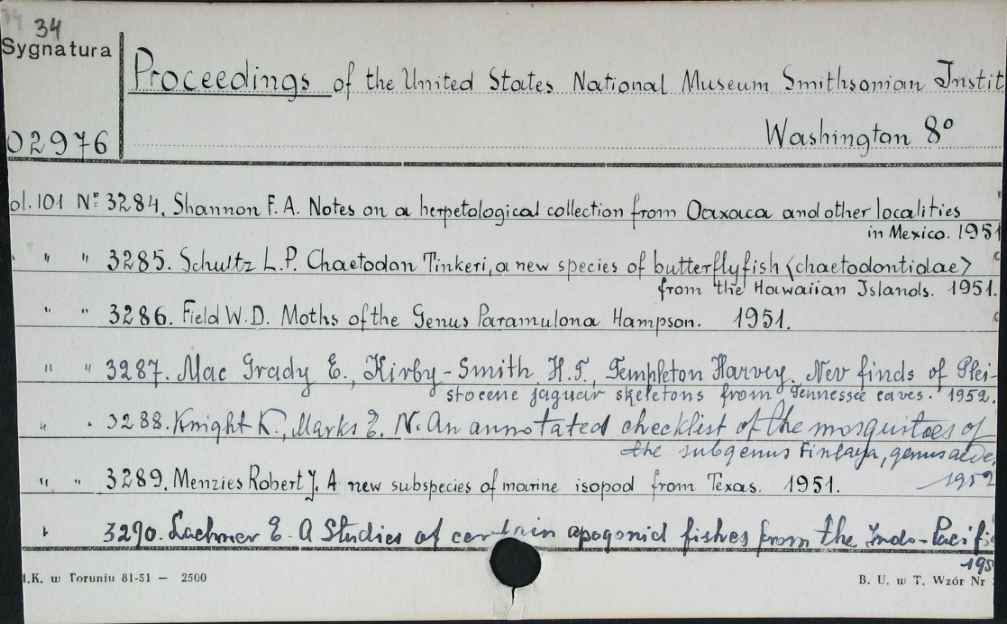 34
Sygnatura
Proceedings of the United States National Museum Smithsonian Instit
02976
Washington 8°
ol. 101 Nr 3284. Shannon F. A. Notes on a herpetological collection from Oaxaca and other localities
in Mexico. 1951
" " 3285. Schultz L.P. Chaetodon Tinkeri, a new species of butterflyfish <chaetodontidae>
from the Hawaiian Islands. 1951.
" " 3286. Field W.D. Moths of the Genus Paramulona Hampson. 1951.
" " 3287. Mac Grady E., Kirby-Smith H.T., Templeton Harvey. Nev finds of Plei-
stocene jaguar skeletons from Tennessee caves. 1952.
" " 3288. Knight K., Marks E. N. An annotated checklist of the mosquitoes of
the subgenus Finlaya, genus aede,
1952
" " 3289. Menzies Robert J. A new subspecies of marine isopod from Texas. 1951.
" 3290. Lachner E. A Studies of certain apogonid fishes from the Indo-Pacific
195
.K. w Toruniu 81-51 — 2500
B. U. w T. Wzór Nr